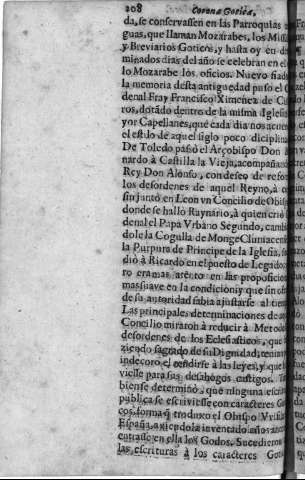 208 Corona Gotica,
da, se conservassen en las Parroquias
guas, que llaman Mozarabes, los Miss
y Breviarios Goticos, y hasta oy en de
minados dias del año se celebran en el
lo Mozarabe los oficios. Nuevo fia
la memoria desta antiguedad puso el C
denal Fray Francisco Ximenez de
ros, dotando dentro de la misma Iglesi
yor Capellanes, que cada dia nos acuer
el estilo de aquel siglo poco diciplina
De Toledo passò el Arçobispo Don
nardo à Castilla la Vieja, acompañan
Rey Don Alonso, con deseo de refor
los desordenes de aquel Reyno, à
sin juntò en Leon vn Concilio de Obis
donde se hallò Raynario, à quien criò
denal el Papa Vrbano Segundo, camb
dole la Cogulla de Monge Cluniacen
la Purpura de Principe de la Iglesia,
diò à Ricardo en el puesto de Legado:
ro era mas atento en las proposicio
mas suave en la condicion; y que sin
de su autoridad sabia ajustarse al tie
Las principales determinaciones de
Concilio miraron à reducir à Metodo
desordenes de los Eclesiasticos, que
ziendo sagrado de su Dignidad, tenian
indecoro el rendirse à las leyes, y que
viesse para sus desahogos castigos. Ta
biense determinò, que ninguna escri
publica se escriviesse con caracteres Go
cos, forma que traduxo el Obispo Vvlfi
España, aviendola inventado años ant
entrasse en ella los Godos. Sucedieron
las escrituras à los caracteres Got